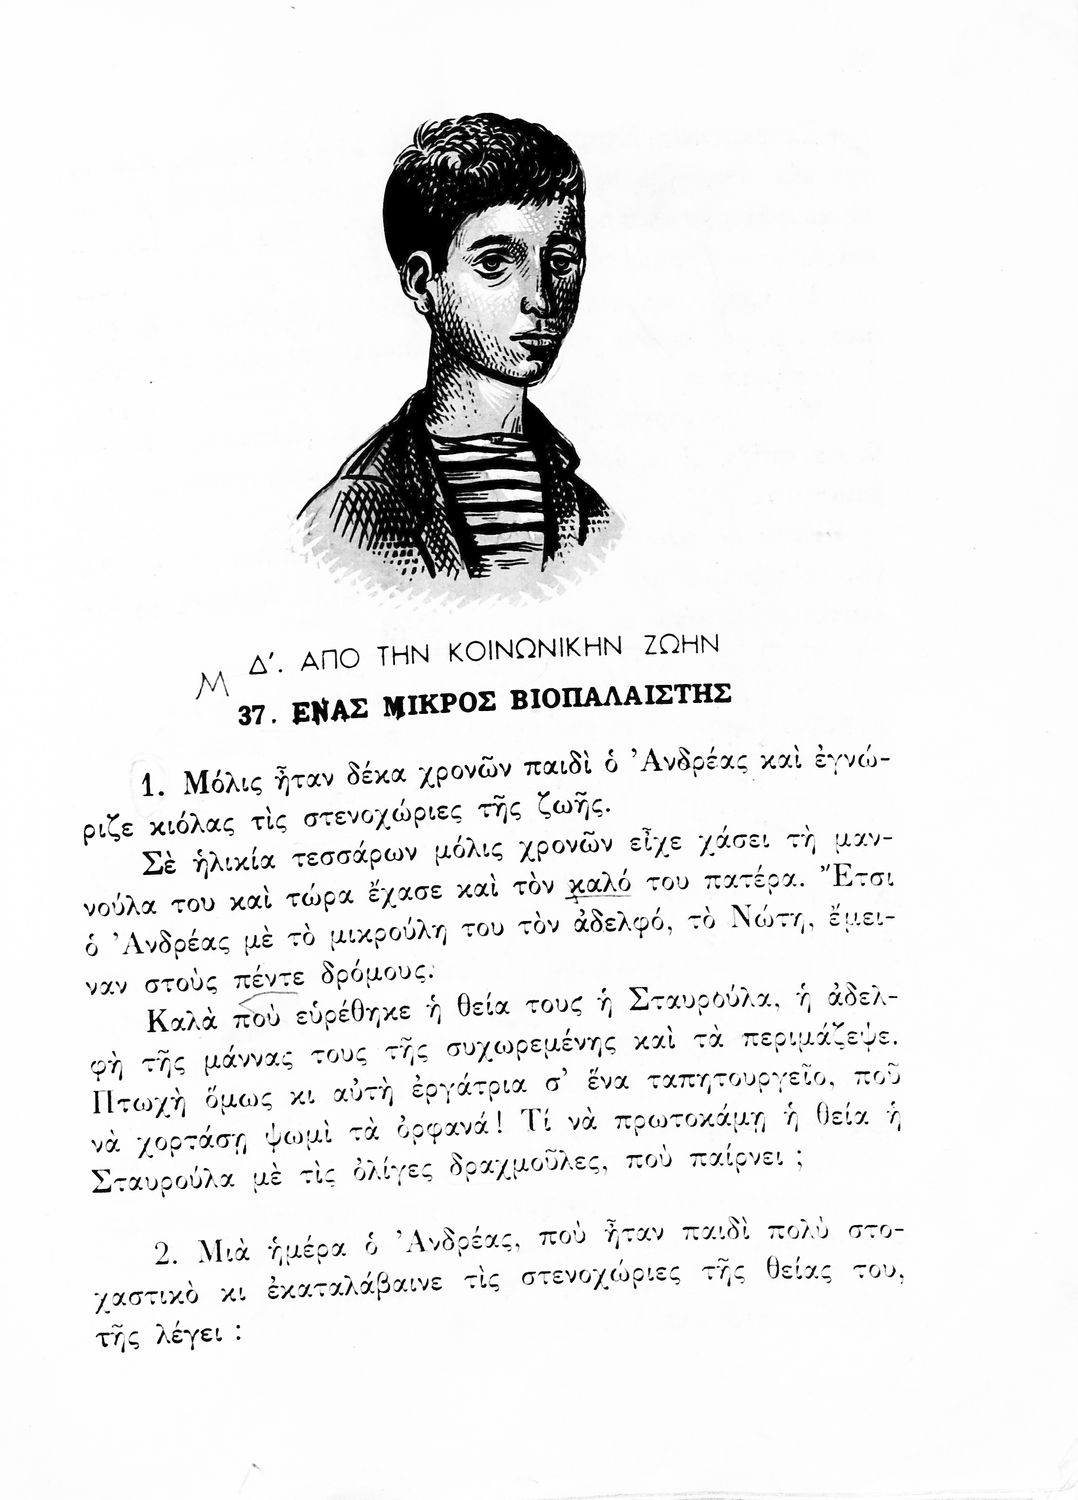 Δ'. ΑΠΟ ΤΗΝ ΚΟΙΝΩΝΙΚΗΝ ΖΩΗΝ
Μ
37. ΕΝΑΣ ΜΙΚΡΟΣ ΒΙΟΠΑΛΑΙΣΤΗΣ
1. Μόλις ἦταν δέκα χρονῶν παιδὶ ὁ Ἀνδρέας καὶ ἐγνώ-
ριζε κιόλας τὶς στενοχώριες τῆς ζωῆς.
Σὲ ἡλικία τεσσάρων μόλις χρονῶν εἶχε χάσει τὴ μαν-
νούλα του καὶ τώρα ἔχασε καὶ τὸν καλό του πατέρα. Ἔτσι
ὁ Ἀνδρέας μὲ τὸ μικρούλη του τὸν ἀδελφό, τὸ Νώτη, ἔμει-
ναν στοὺς πέντε δρόμους.
Καλὰ ποὺ εὑρέθηκε ἡ θεία τους ἡ Σταυρούλα, ἡ ἀδελ-
φὴ τῆς μάννας τους τῆς συχωρεμένης καὶ τὰ περιμάζεψε.
Πτωχὴ ὅμως κι αὐτὴ ἐργάτρια σ' ἕνα ταπητουργεῖο, ποῦ
νὰ χορτάσῃ ψωμὶ τὰ ὀρφανά! Τί νὰ πρωτοκάμῃ ἡ θεία ἡ
Σταυρούλα μὲ τὶς ὀλίγες δραχμοῦλες, ποὺ παίρνει ;
2. Μιὰ ἡμέρα ὁ Ἀνδρέας, ποὺ ἦταν παιδὶ πολὺ στο-
χαστικὸ κι ἐκαταλάβαινε τὶς στενοχώριες τῆς θείας του,
τῆς λέγει :